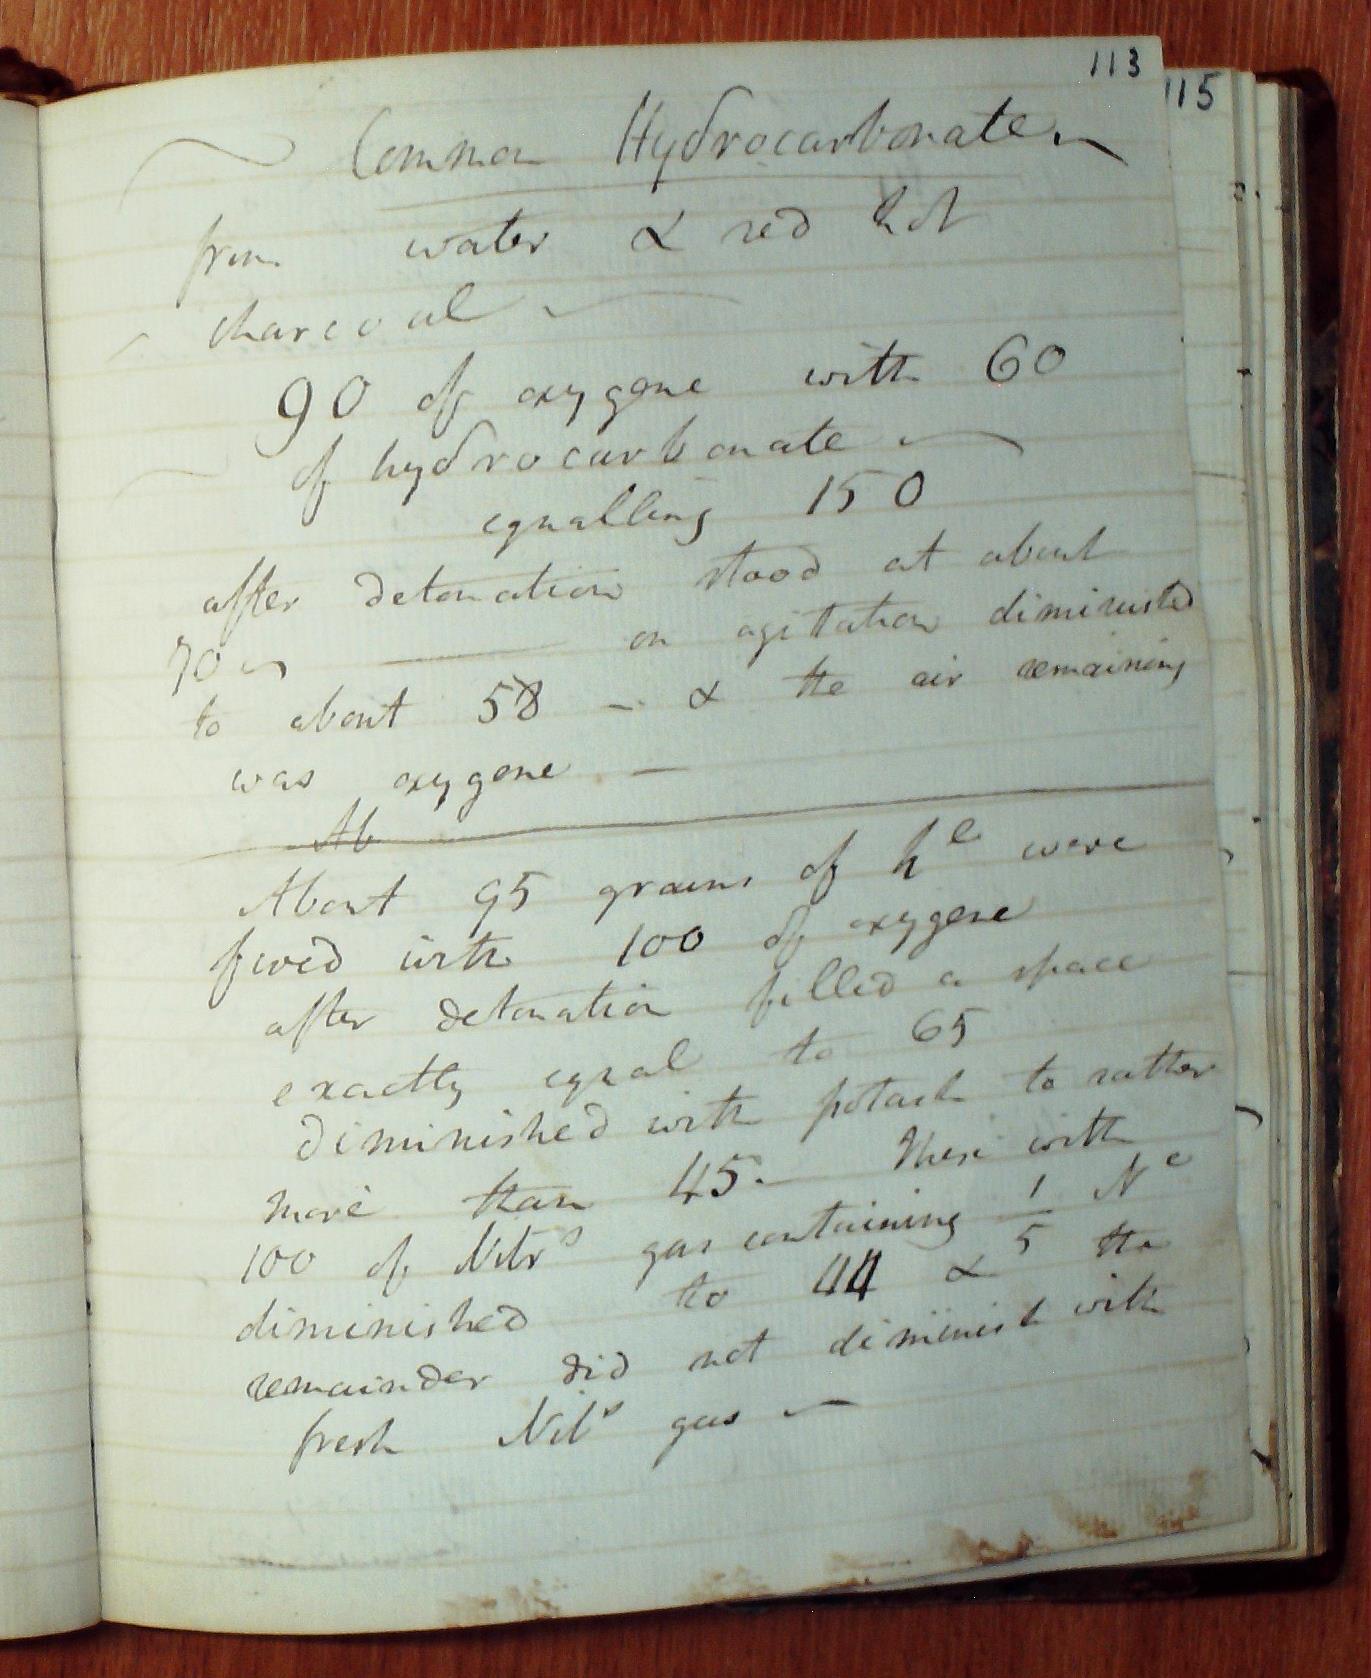 113
115
Common Hydrocarbonate.
from water & red hot
charcoal
90 of oxygene with 60
of hydrocarbonate
equalling 150
after detonation stood at about
70 — on agitation diminished
to about 58 - & the air remaining
was oxygene —
Ab
About 95 grains of h^e were
fired with 100 of oxygene
after detonation filled a space
exactly equal to 65
diminished with potash to rather
more than 45. - These with
100 of Nitr^s gas containing 1/5 N^e
diminished to 44 & the
remainder did not diminish with
fresh Nit^s gas —